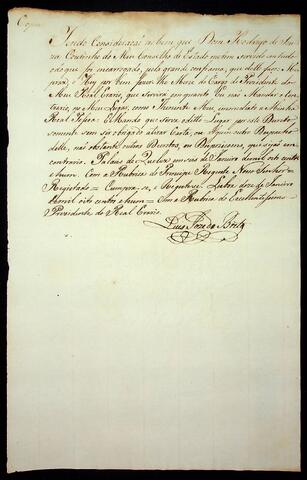 Copia
Tendo Consideração ao bem que Dom Rodrigo de Sou-
za Coutinho do Meu Conselho de Estado me tem servido em tudo
do que foi encarregado, e pela grande confiança, que delle faço: Me
praz, e Hey por bem fazer-lhe Merce do Cargo de Prezidente do
Meu Real Erario, que servirá em quanto Eu não Mandar o con-
trario, no Meu Lugar, como Thenente Meu, immediato á Minha
Real Pessoa: E Mando que sirva o dito Lugar por este Decreto
somente sem ser obrigado a tirar Carta, ou Algum outro Despacho
delle, não obstante outros Decretos, ou Dispoziçoens, que sejão em
contrario. Palacio de Queluz em seis de Janeiro de mil oito centos
e hum. Com a Rubrica do Principe Regente Nosso Senhor =
Registado = Cumpra-se, e Registe-se. Lisboa doze de Janeiro
de mil oito centos e hum = Com a Rubrica do Excellentissimo
Prezidente do Real Erario.
Luis Jozé de Brito